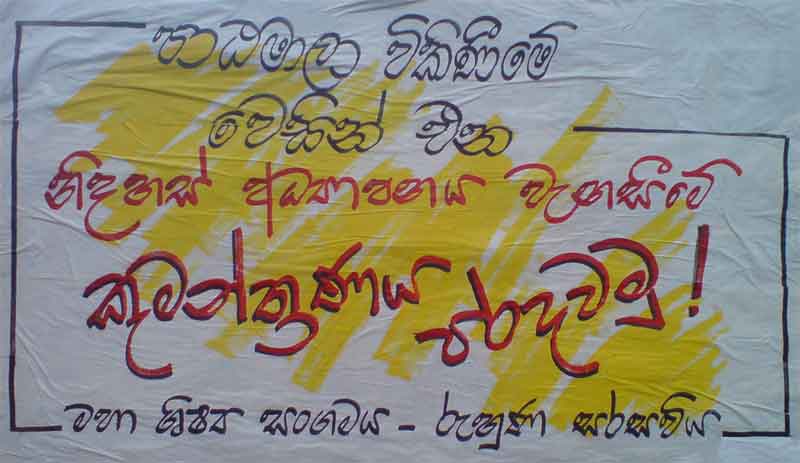 පාඨමාලා විකිණීමේ
වෙසින් එන
නිදහස් අධ්‍යාපනය වැනසීමේ
කුමන්ත්‍රණය පරදවමු !
මහා ශිෂ්‍ය සංගමය - රුහුණ සරසවිය